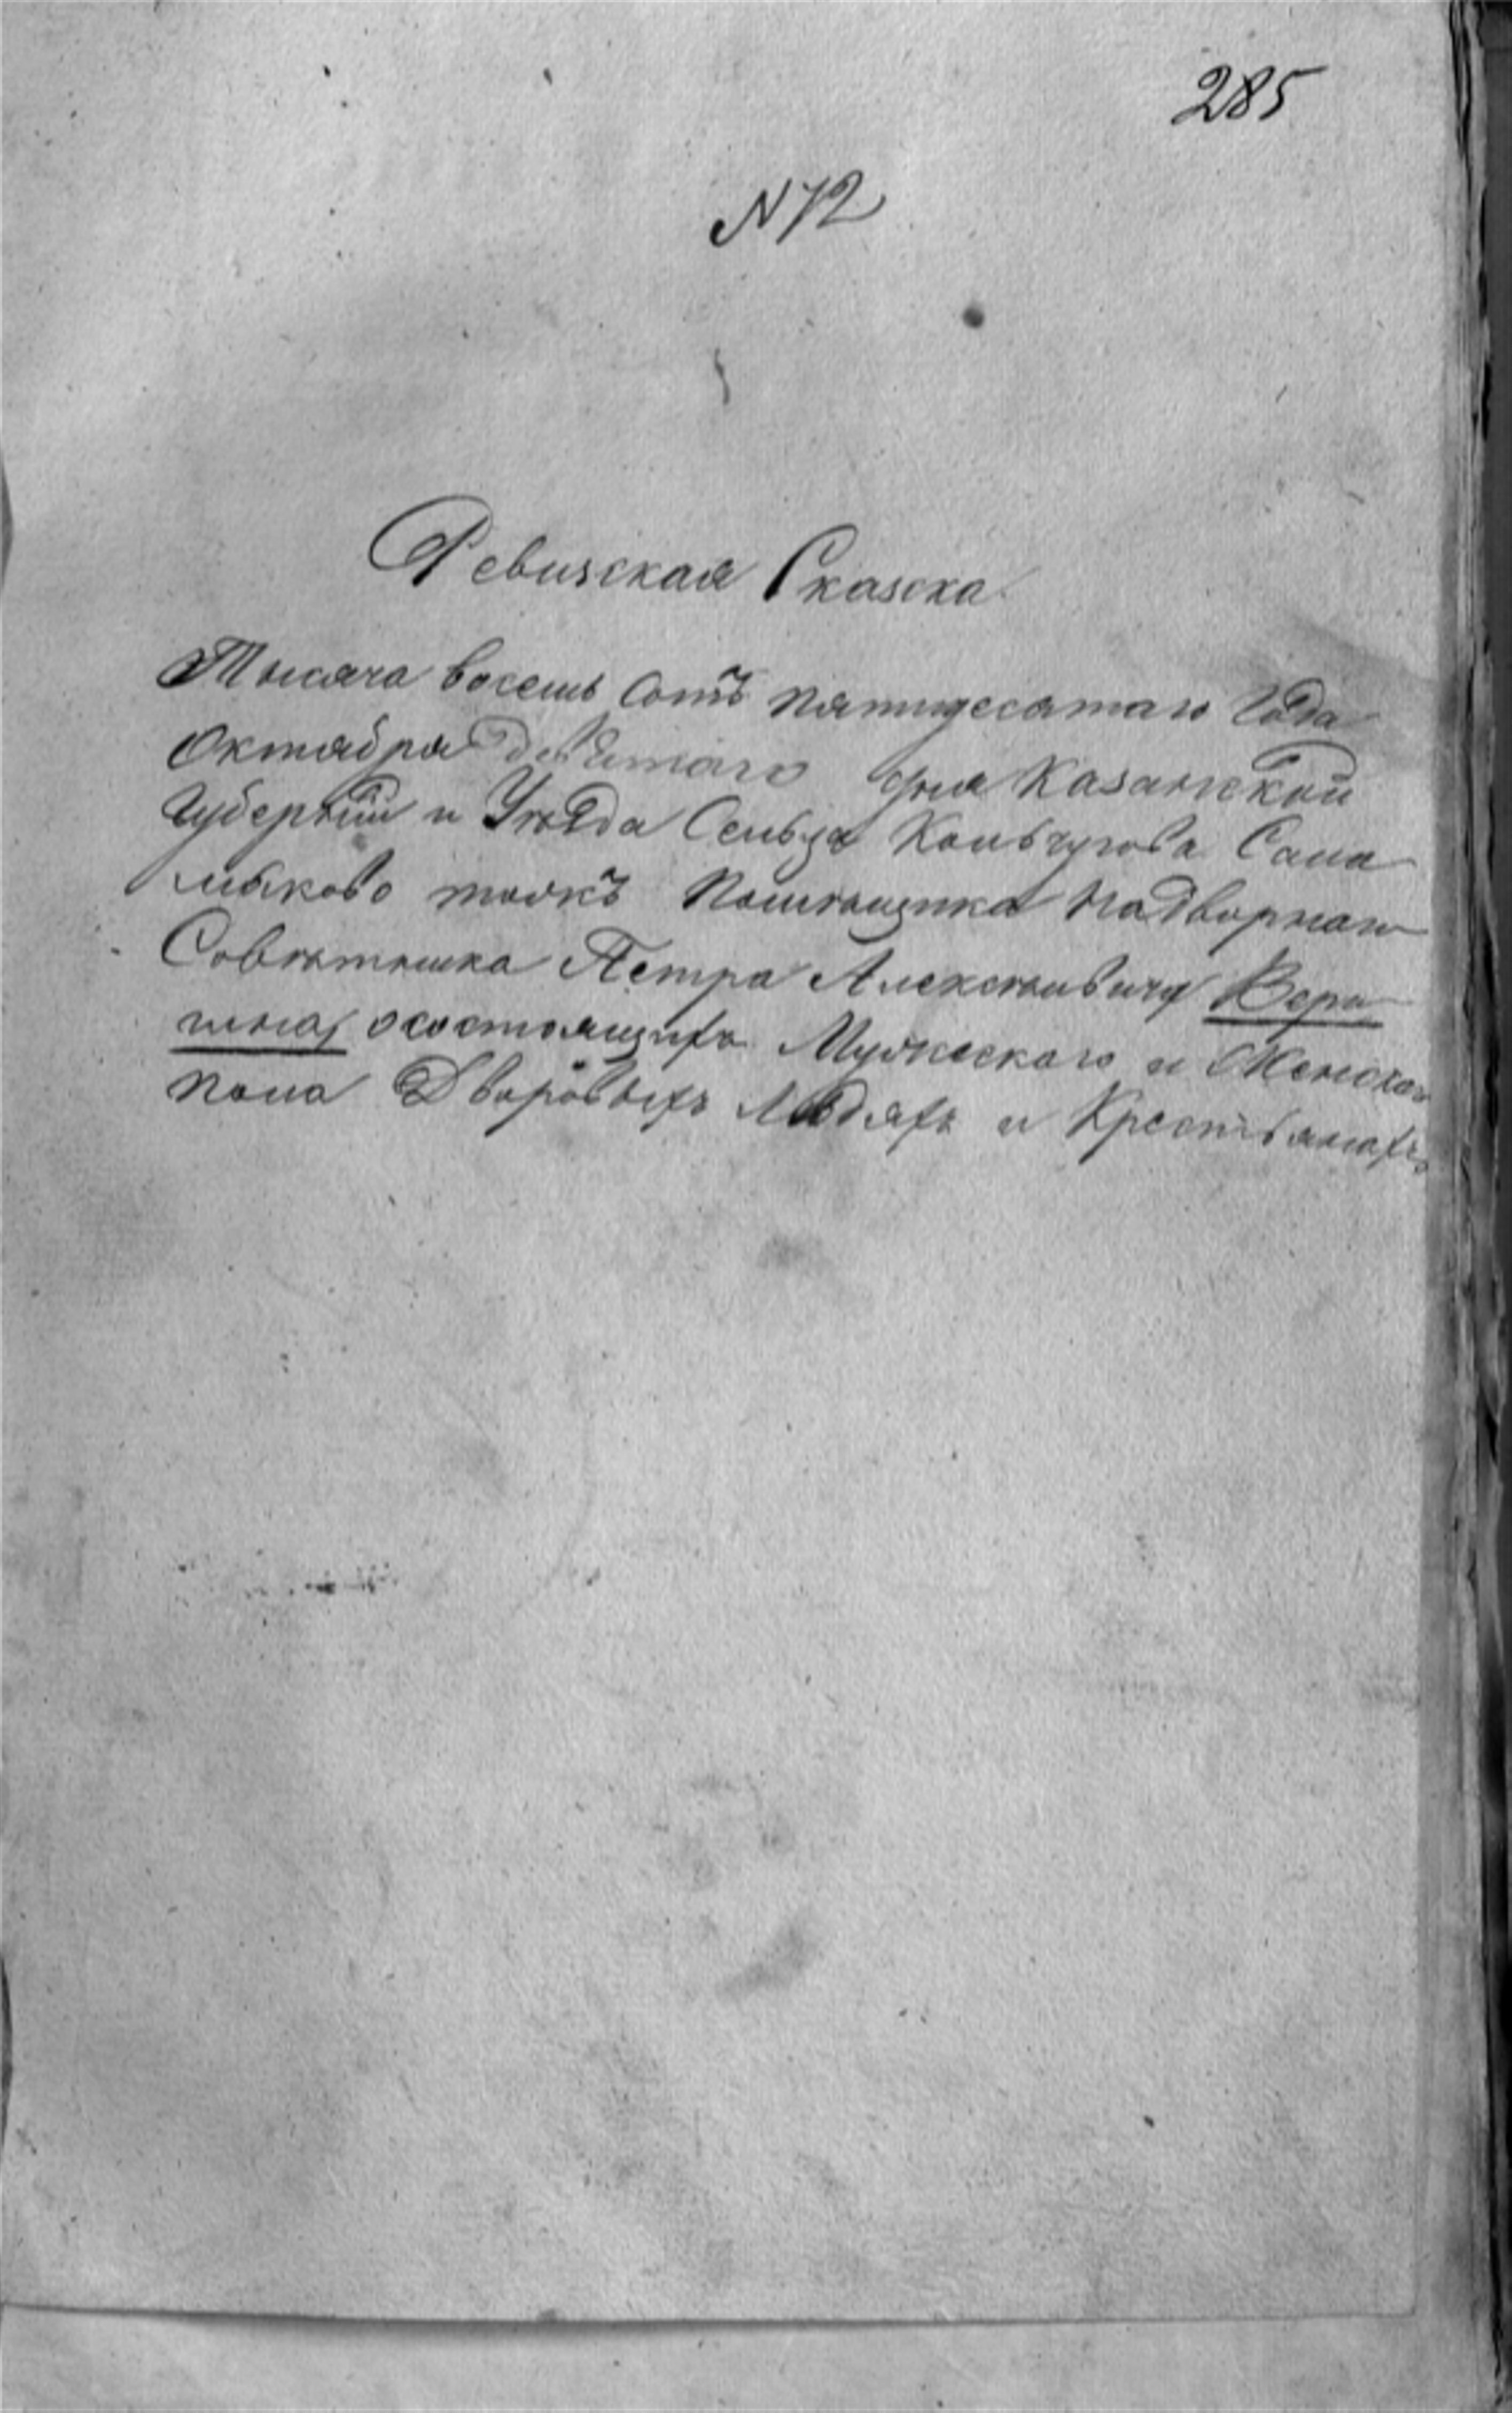 285
N 72
Ревизская Сказка
Тысяча восемь сотъ пятидесятаго Года
Октября девятаго дня Казанской
Губерніи и Уѣзда Сельца Кольчугова Сала
мыково тожъ Помѣщика Надворнаго
Совѣтника Петра Алексѣевича Вери
гина, о состоящихъ Мужескаго и Женскаго
пола Дворовыхъ Людяхъ и Крестьянахъ